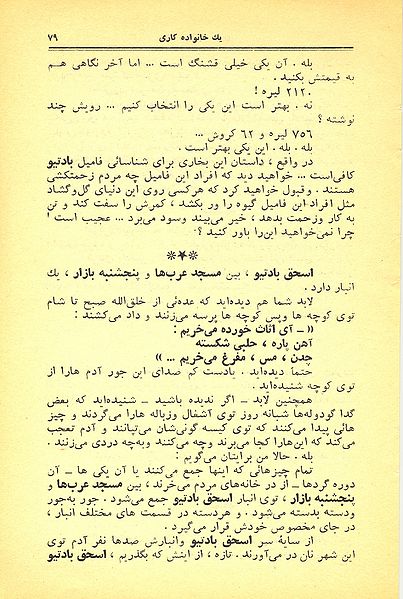 یك خانواده کاری
۷۹
بله . آن یکی خیلی قشنگ است ... اما آخر نگاهی هم
به قیمتش بکنید .
۲۱۲۰ لیره !
نه . بهتر است این یکی را انتخاب کنیم ... رویش چند
نوشته ؟
۷۵۶ لیره و ۶۲ کروش ...
بله . بله . این یکی بهتر است .
در واقع ، داستان این بخاری برای شناسائی فامیل بادتیو
کافی‌است ... خواهید دید که افراد این فامیل چه مردم زحمتکشی
هستند . وقبول خواهید کرد که هرکسی روی این دنیای گل‌وگشاد
مثل افراد این فامیل گیوه را ور بکشد ، کمرش را سفت کند و تن
به کار وزحمت بدهد ، خیر می‌بیند وسود می‌برد ... عجیب است !
چرا نمی‌خواهید این‌را باور کنید ؟
***
اسحق بادتیو ، بین مسجد عرب‌ها و پنجشنبه بازار ، یك
انبار دارد .
لابد شما هم دیده‌اید که عده‌ئی از خلق‌الله صبح تا شام
توی کوچه ها وپس کوچه ها پرسه می‌زنند و داد می‌کشند :
« ــ آی اثاث خورده می‌خریم :
آهن پاره ، حلبی شکسته
چدن ، مس ، مفرغ می‌خریم ... »
حتماً دیده‌اید . یادست کم صدای این جور آدم هارا از
توی کوچه شنیده‌اید .
همچنین لابد ــ اگر ندیده باشید ــ شنیده‌اید که بعض
گدا گودوله‌ها شبانه روز توی آشغال وزباله ها می‌گردند و چیز
هائی پیدا می‌کنند که توی کیسه گونی‌شان می‌تپانند و آدم تعجب
می‌کند که این‌هارا کجا می‌برند وچه می‌کنند وبه‌چه دردی می‌زنند .
بله . حالا من برایتان می‌گویم :
تمام چیزهائی که اینها جمع می‌کنند یا آن یکی ها ــ آن
دوره گردها ــ از در خانه‌های مردم می‌خرند ، بین مسجد عرب‌ها و
پنجشنبه بازار ، توی انبار اسحق بادتیو جمع می‌شود . جور به‌جور
ودسته بدسته می‌شود . و هردسته در قسمت های مختلف انبار ،
در جای مخصوص خودش قرار می‌گیرد .
از سایهٔ سر اسحق بادتیو وانبارش صدها نفر آدم توی
این شهر نان در می‌آورند . تازه ، از اینش که بگذریم ، اسحق بادتیو